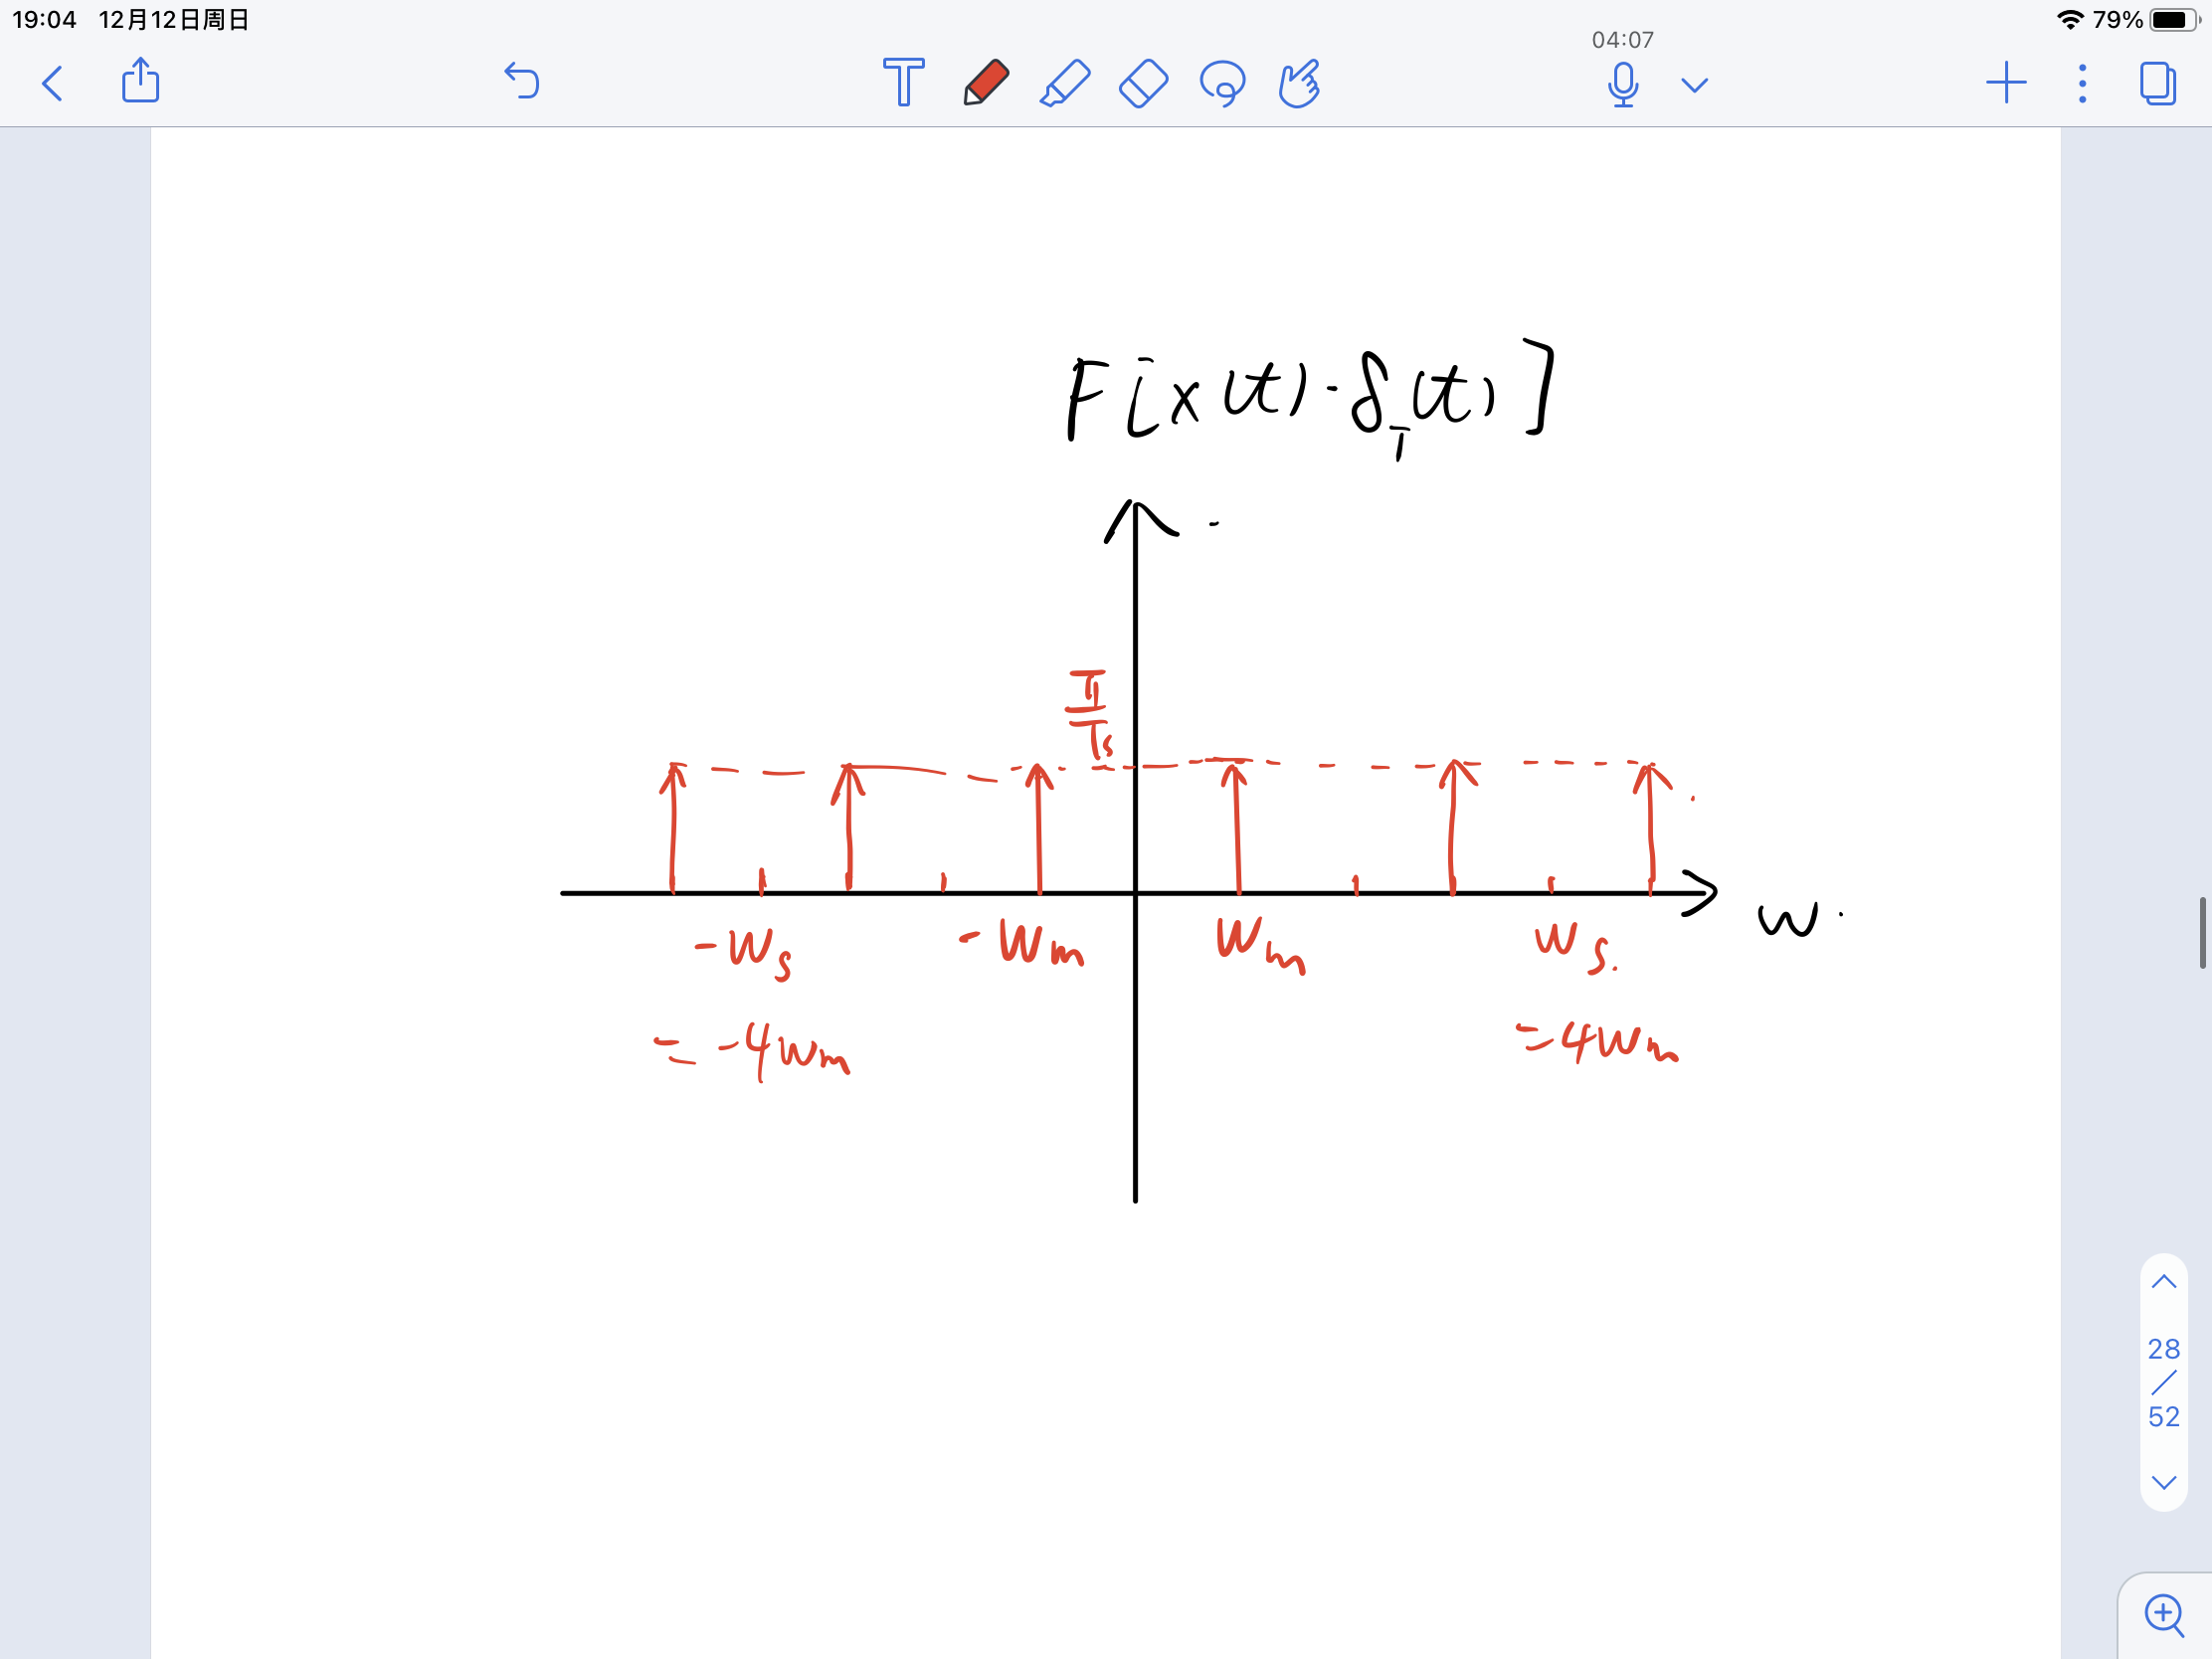 19:04 12月12日周日 79%
04:07
F[x(t)·δ_T(t)]
π/Ts
-ws -wm wm ws. w.
= -4wm =4wm
28
/
52